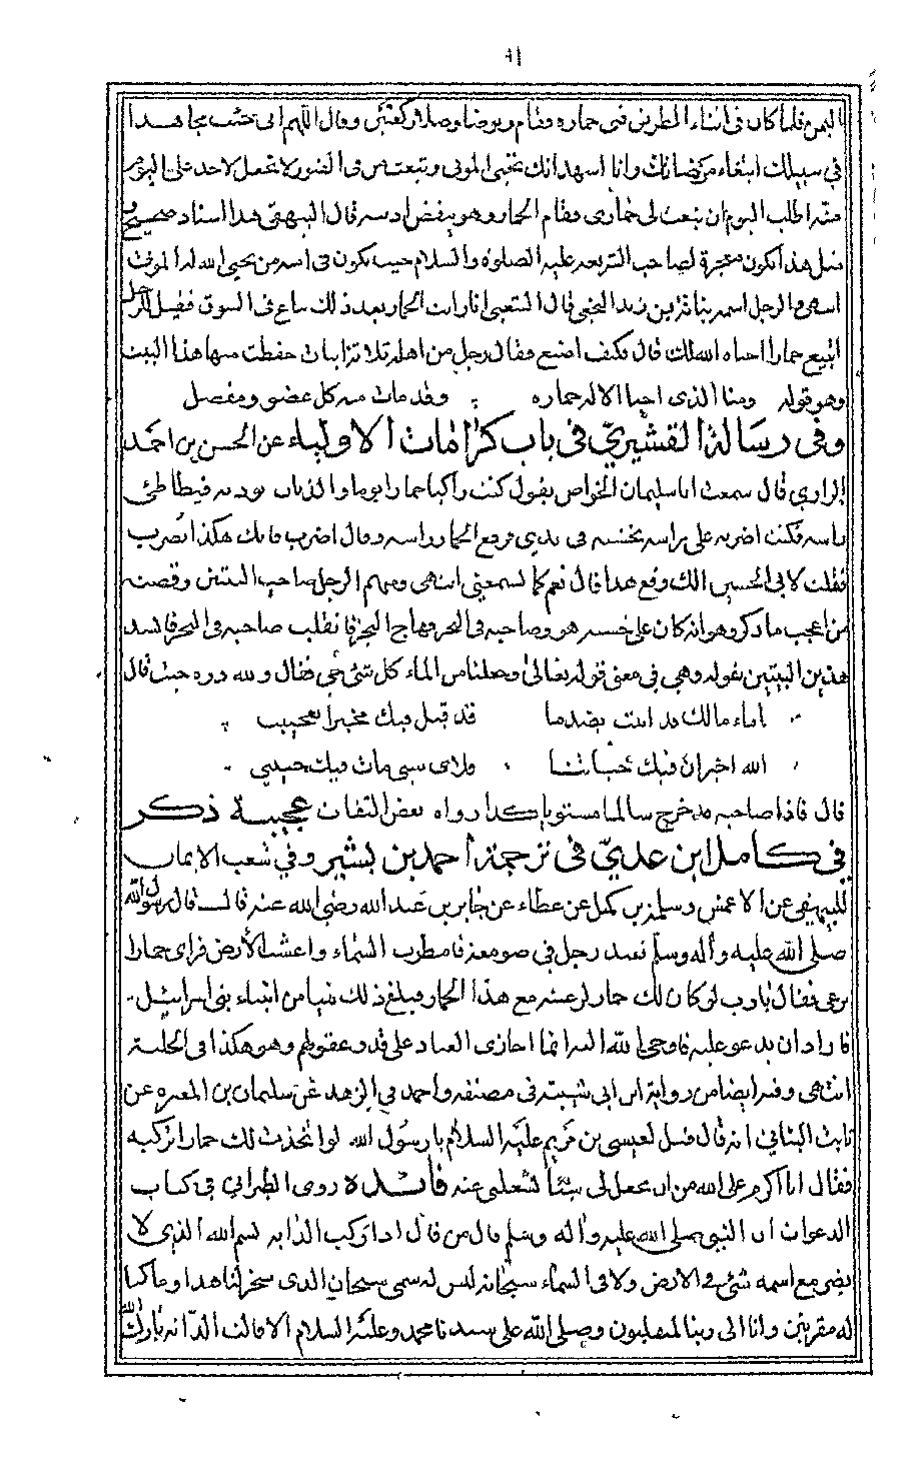 اليمن فلما كان في اثناء الطريق نفق حماره فقام وتوضا وصلا ركعتين وقال اللهم اني جئت مجاهدا
في سبيلك ابتغاء مرضاتك وانا اشهد انك تحيي الموتى وتبعث من في القبور لا تجعل لاحد علي اليوم
منة اطلب اليوم ان تبعث لي حماري فقام الحمار وهو ينفض اذنيه قال البيهقي هذا اسناد صحيح و
مثل هذا يكون معجزة لصاحب الشريعة عليه الصلوة والسلام حيث يكون في امته من يحيي الله له الموتى
انتهى والرجل اسمه نباتة بن يزيد النخعي قال الشعبي انا رايت الحمار بعد ذلك يباع في السوق فقيل للرجل
اتبيع حمارا احياه الله لك قال فكيف اصنع فقال رجل من اهله ثلاثة ابيات حفظت منها هذا البيت
وهو قوله ومنا الذي احيا الاله حماره وقد مات منه كل عضو ومفصل
وفي رسالة القشيري في باب كرامات الاولياء عن الحسن بن احمد
الرازي قال سمعت ابا سليمان الخواص يقول كنت راكبا حمارا يوما والذباب يوذيه فيطاطئ
راسه فكنت اضربه على راسه بخشبة في يدي فرفع الحمار راسه وقال اضرب فانك هكذا تضرب
فقلت لابي الحسين الك وقع هذا قال نعم كما تسمعني انتهى
من اعجب ما ذكر وهو انه كان على جسر هو وصاحبه في البحر فهاج البحر فانقلب صاحبه في البحر فانشد
هذين البيتين بقوله وهي في معنى قوله تعالى وجعلنا من الماء كل شئ حي فقال ولله دره حيث قال
اماء مالك قد اتيت بضد ما قد قيل فيك مخبرا بعجيب
الله اخبر ان فيك حياتنا فلاي شي مات فيك حبيبي
قال فاذا صاحبه قد خرج سالما مستويا كذا رواه بعض الثقات عجيبة ذكر
في كامل ابن عدي في ترجمة احمد بن بشير وفي شعب الايمان
للبيهقي عن الاعمش وسلمة بن كهيل عن عطاء عن جابر بن عبد الله رضي الله عنه قال قال رسول الله
صلى الله عليه وآله وسلم تعبد رجل في صومعة فامطرت السماء واعشبت الارض فراى حمارا
يرعى فقال يارب لو كان لك حمار لرعيته مع هذا الحمار فبلغ ذلك نبيا من انبياء بني اسرائيل
فاراد ان يدعو عليه فاوحى الله اليه انما اجازي العباد على قدر عقولهم وهو هكذا في الحلية
انتهى وفيه ايضا من رواية ابن ابي شيبة في مصنفه واحمد في الزهد عن سليمان بن المغيرة عن
ثابت البناني انه قال قيل لعيسى بن مريم عليه السلام يا رسول الله لو اتخذت لك حمارا تركبه
فقال انا اكرم على الله من ان يجعل لي شيئا يشغلني عنه فائدة روى الطبراني في كتاب
الدعوات ان النبي صلى الله عليه وآله وسلم قال من قال اذا ركب الدابة بسم الله الذي لا
يضر مع اسمه شئ في الارض ولا في السماء سبحانه ليس له سمي سبحان الذي سخر لنا هذا وما كنا
له مقرنين وانا الى ربنا لمنقلبون وصلى الله على سيدنا محمد وعليه السلام الا قالت الدابة بارك الله